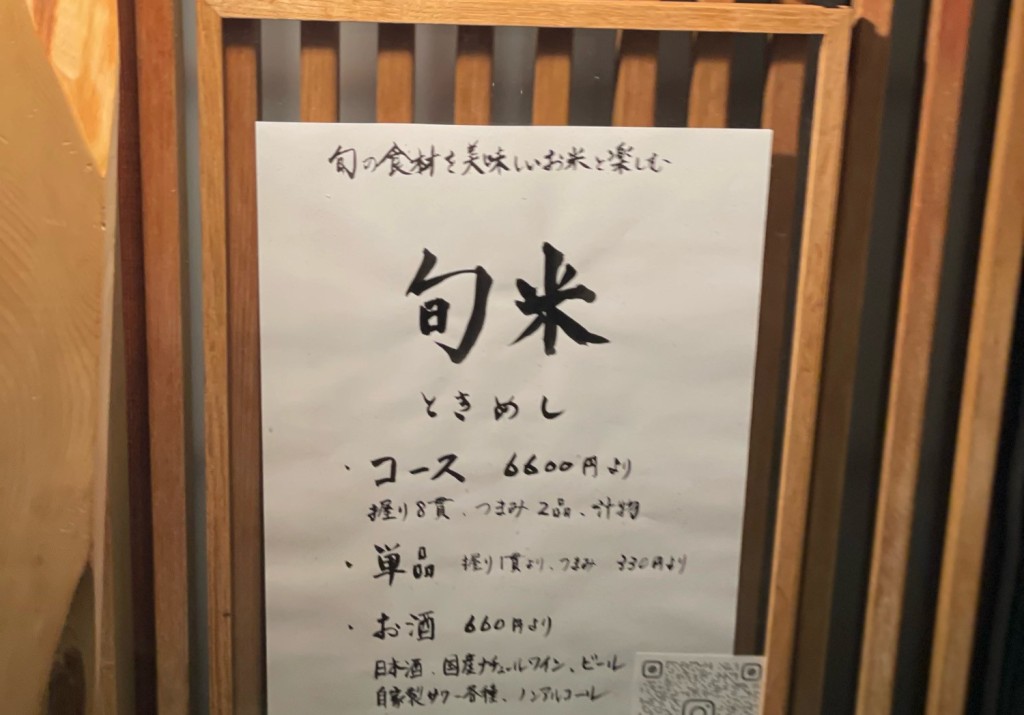 旬の食材を美味しいお米と楽しむ
旬米
ときめし
・コース 6600円より
握り8貫、つまみ2品、汁物
・単品 握り1貫より、つまみ 330円より
・お酒 660円より
日本酒、国産ナチュールワイン、ビール
自家製サワー各種、ノンアルコール